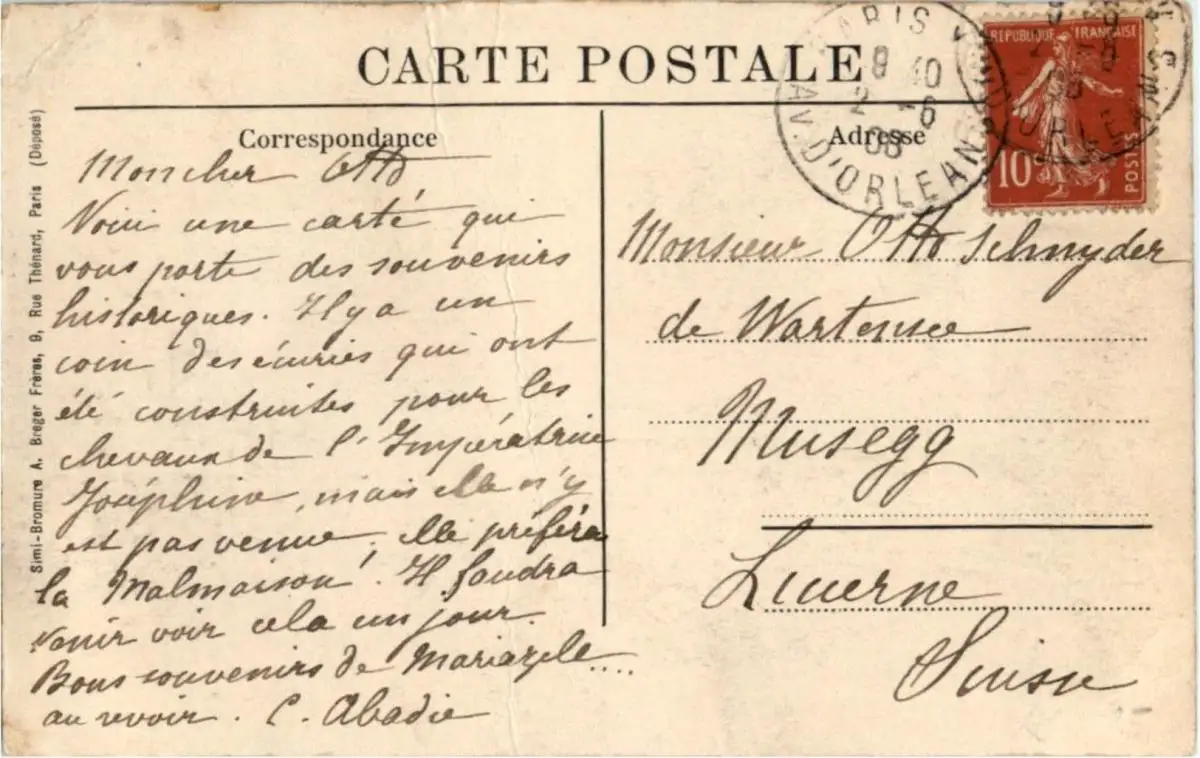 CARTE POSTALE
Correspondance
Mon cher Otto
Voici une carté qui
vous porte des souvenirs
historiques. Il y a un
coin des écuries qui ont
été construites pour les
chevaux de l'Impératrice
Joséphine, mais elle n'y
est pas venue. Elle préféra
la Malmaison! Il faudra
venir voir cela un jour.
Bons souvenirs de Mariazele....
au revoir. C. Abadie
Adresse
Monsieur Otto Schnyder
de Wartensee
Musegg
Lucerne
Suisse
PARIS
8 10
2 - 6
08
AV. D'ORLEANS
REPUBLIQUE FRANÇAISE
10
POSTES
Simi-Bromure A. Breger Frères, 9, Rue Thénard, Paris (Déposé)